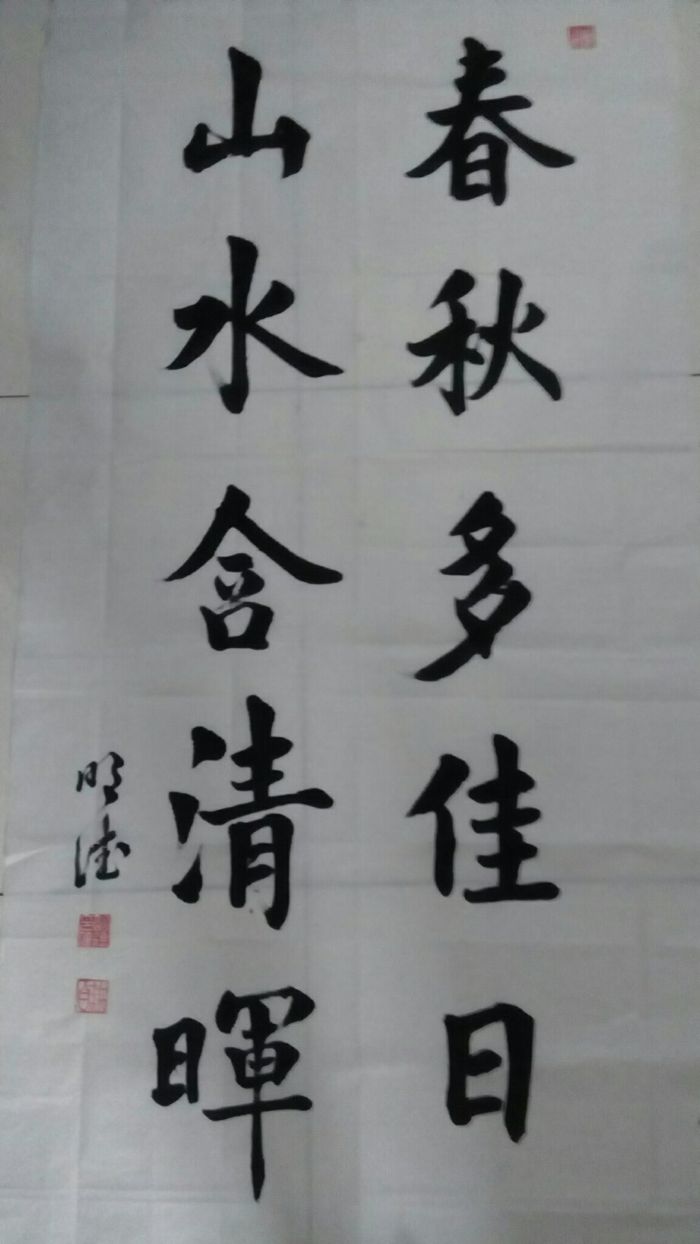 春秋多佳日
山水含清暉
明德